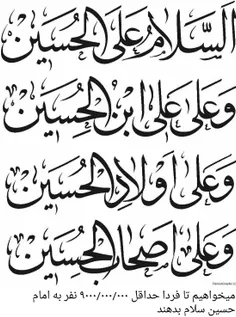 السَّلَامُ عَلَى الحُسَيْن
وَعَلَى عَلِيِّ ابْنِ الحُسَيْنِ
وَعَلَى اَوْلَادِ الحُسَيْنِ
وَعَلَى اَصْحَابِ الحُسَيْنِ
میخواهیم تا فردا حداقل ۹۰۰۰/۰۰۰/۰۰۰ نفر به امام
حسین سلام بدهند